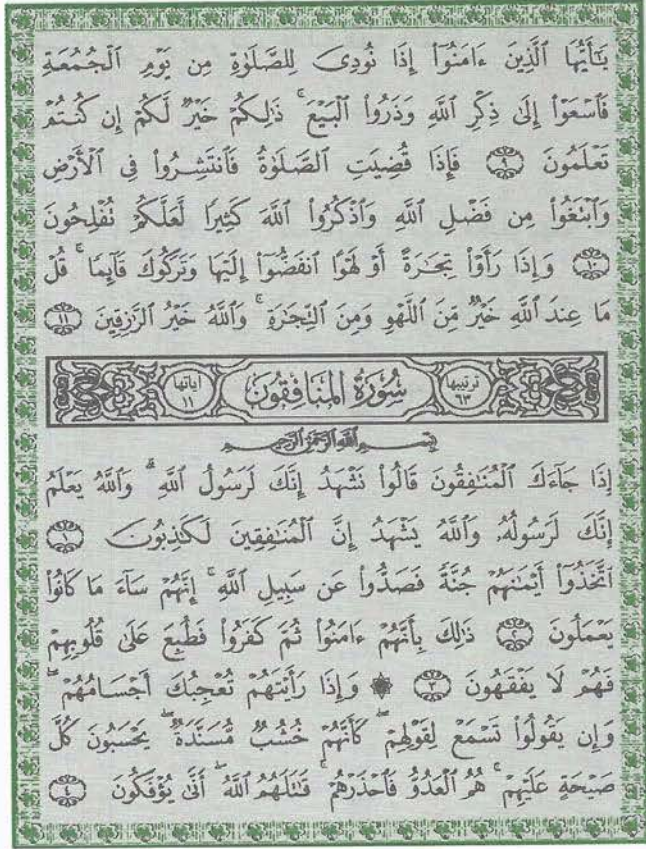 يَـٰٓأَيُّهَا ٱلَّذِينَ ءَامَنُوٓا۟ إِذَا نُودِىَ لِلصَّلَوٰةِ مِن يَوْمِ ٱلْجُمُعَةِ
فَٱسْعَوْا۟ إِلَىٰ ذِكْرِ ٱللَّهِ وَذَرُوا۟ ٱلْبَيْعَ ۚ ذَٰلِكُمْ خَيْرٌ لَّكُمْ إِن كُنتُمْ
تَعْلَمُونَ ٩ فَإِذَا قُضِيَتِ ٱلصَّلَوٰةُ فَٱنتَشِرُوا۟ فِى ٱلْأَرْضِ
وَٱبْتَغُوا۟ مِن فَضْلِ ٱللَّهِ وَٱذْكُرُوا۟ ٱللَّهَ كَثِيرًا لَّعَلَّكُمْ تُفْلِحُونَ
١٠ وَإِذَا رَأَوْا۟ تِجَـٰرَةً أَوْ لَهْوًا ٱنفَضُّوٓا۟ إِلَيْهَا وَتَرَكُوكَ قَآئِمًا ۚ قُلْ
مَا عِندَ ٱللَّهِ خَيْرٌ مِّنَ ٱللَّهْوِ وَمِنَ ٱلتِّجَـٰرَةِ ۚ وَٱللَّهُ خَيْرُ ٱلرَّٰزِقِينَ ١١
ترتيبها ٦٣ سُورَةُ المنَافِقُون آياتها ١١
بِسْمِ ٱللَّهِ ٱلرَّحْمَـٰنِ ٱلرَّحِيمِ
إِذَا جَآءَكَ ٱلْمُنَـٰفِقُونَ قَالُوا۟ نَشْهَدُ إِنَّكَ لَرَسُولُ ٱللَّهِ ۗ وَٱللَّهُ يَعْلَمُ
إِنَّكَ لَرَسُولُهُۥ وَٱللَّهُ يَشْهَدُ إِنَّ ٱلْمُنَـٰفِقِينَ لَكَـٰذِبُونَ ١
ٱتَّخَذُوٓا۟ أَيْمَـٰنَهُمْ جُنَّةً فَصَدُّوا۟ عَن سَبِيلِ ٱللَّهِ ۚ إِنَّهُمْ سَآءَ مَا كَانُوا۟
يَعْمَلُونَ ٢ ذَٰلِكَ بِأَنَّهُمْ ءَامَنُوا۟ ثُمَّ كَفَرُوا۟ فَطُبِعَ عَلَىٰ قُلُوبِهِمْ
فَهُمْ لَا يَفْقَهُونَ ٣ ۞ وَإِذَا رَأَيْتَهُمْ تُعْجِبُكَ أَجْسَامُهُمْ ۖ
وَإِن يَقُولُوا۟ تَسْمَعْ لِقَوْلِهِمْ ۖ كَأَنَّهُمْ خُشُبٌ مُّسَنَّدَةٌ ۖ يَحْسَبُونَ كُلَّ
صَيْحَةٍ عَلَيْهِمْ ۚ هُمُ ٱلْعَدُوُّ فَٱحْذَرْهُمْ ۚ قَـٰتَلَهُمُ ٱللَّهُ ۖ أَنَّىٰ يُؤْفَكُونَ ٤